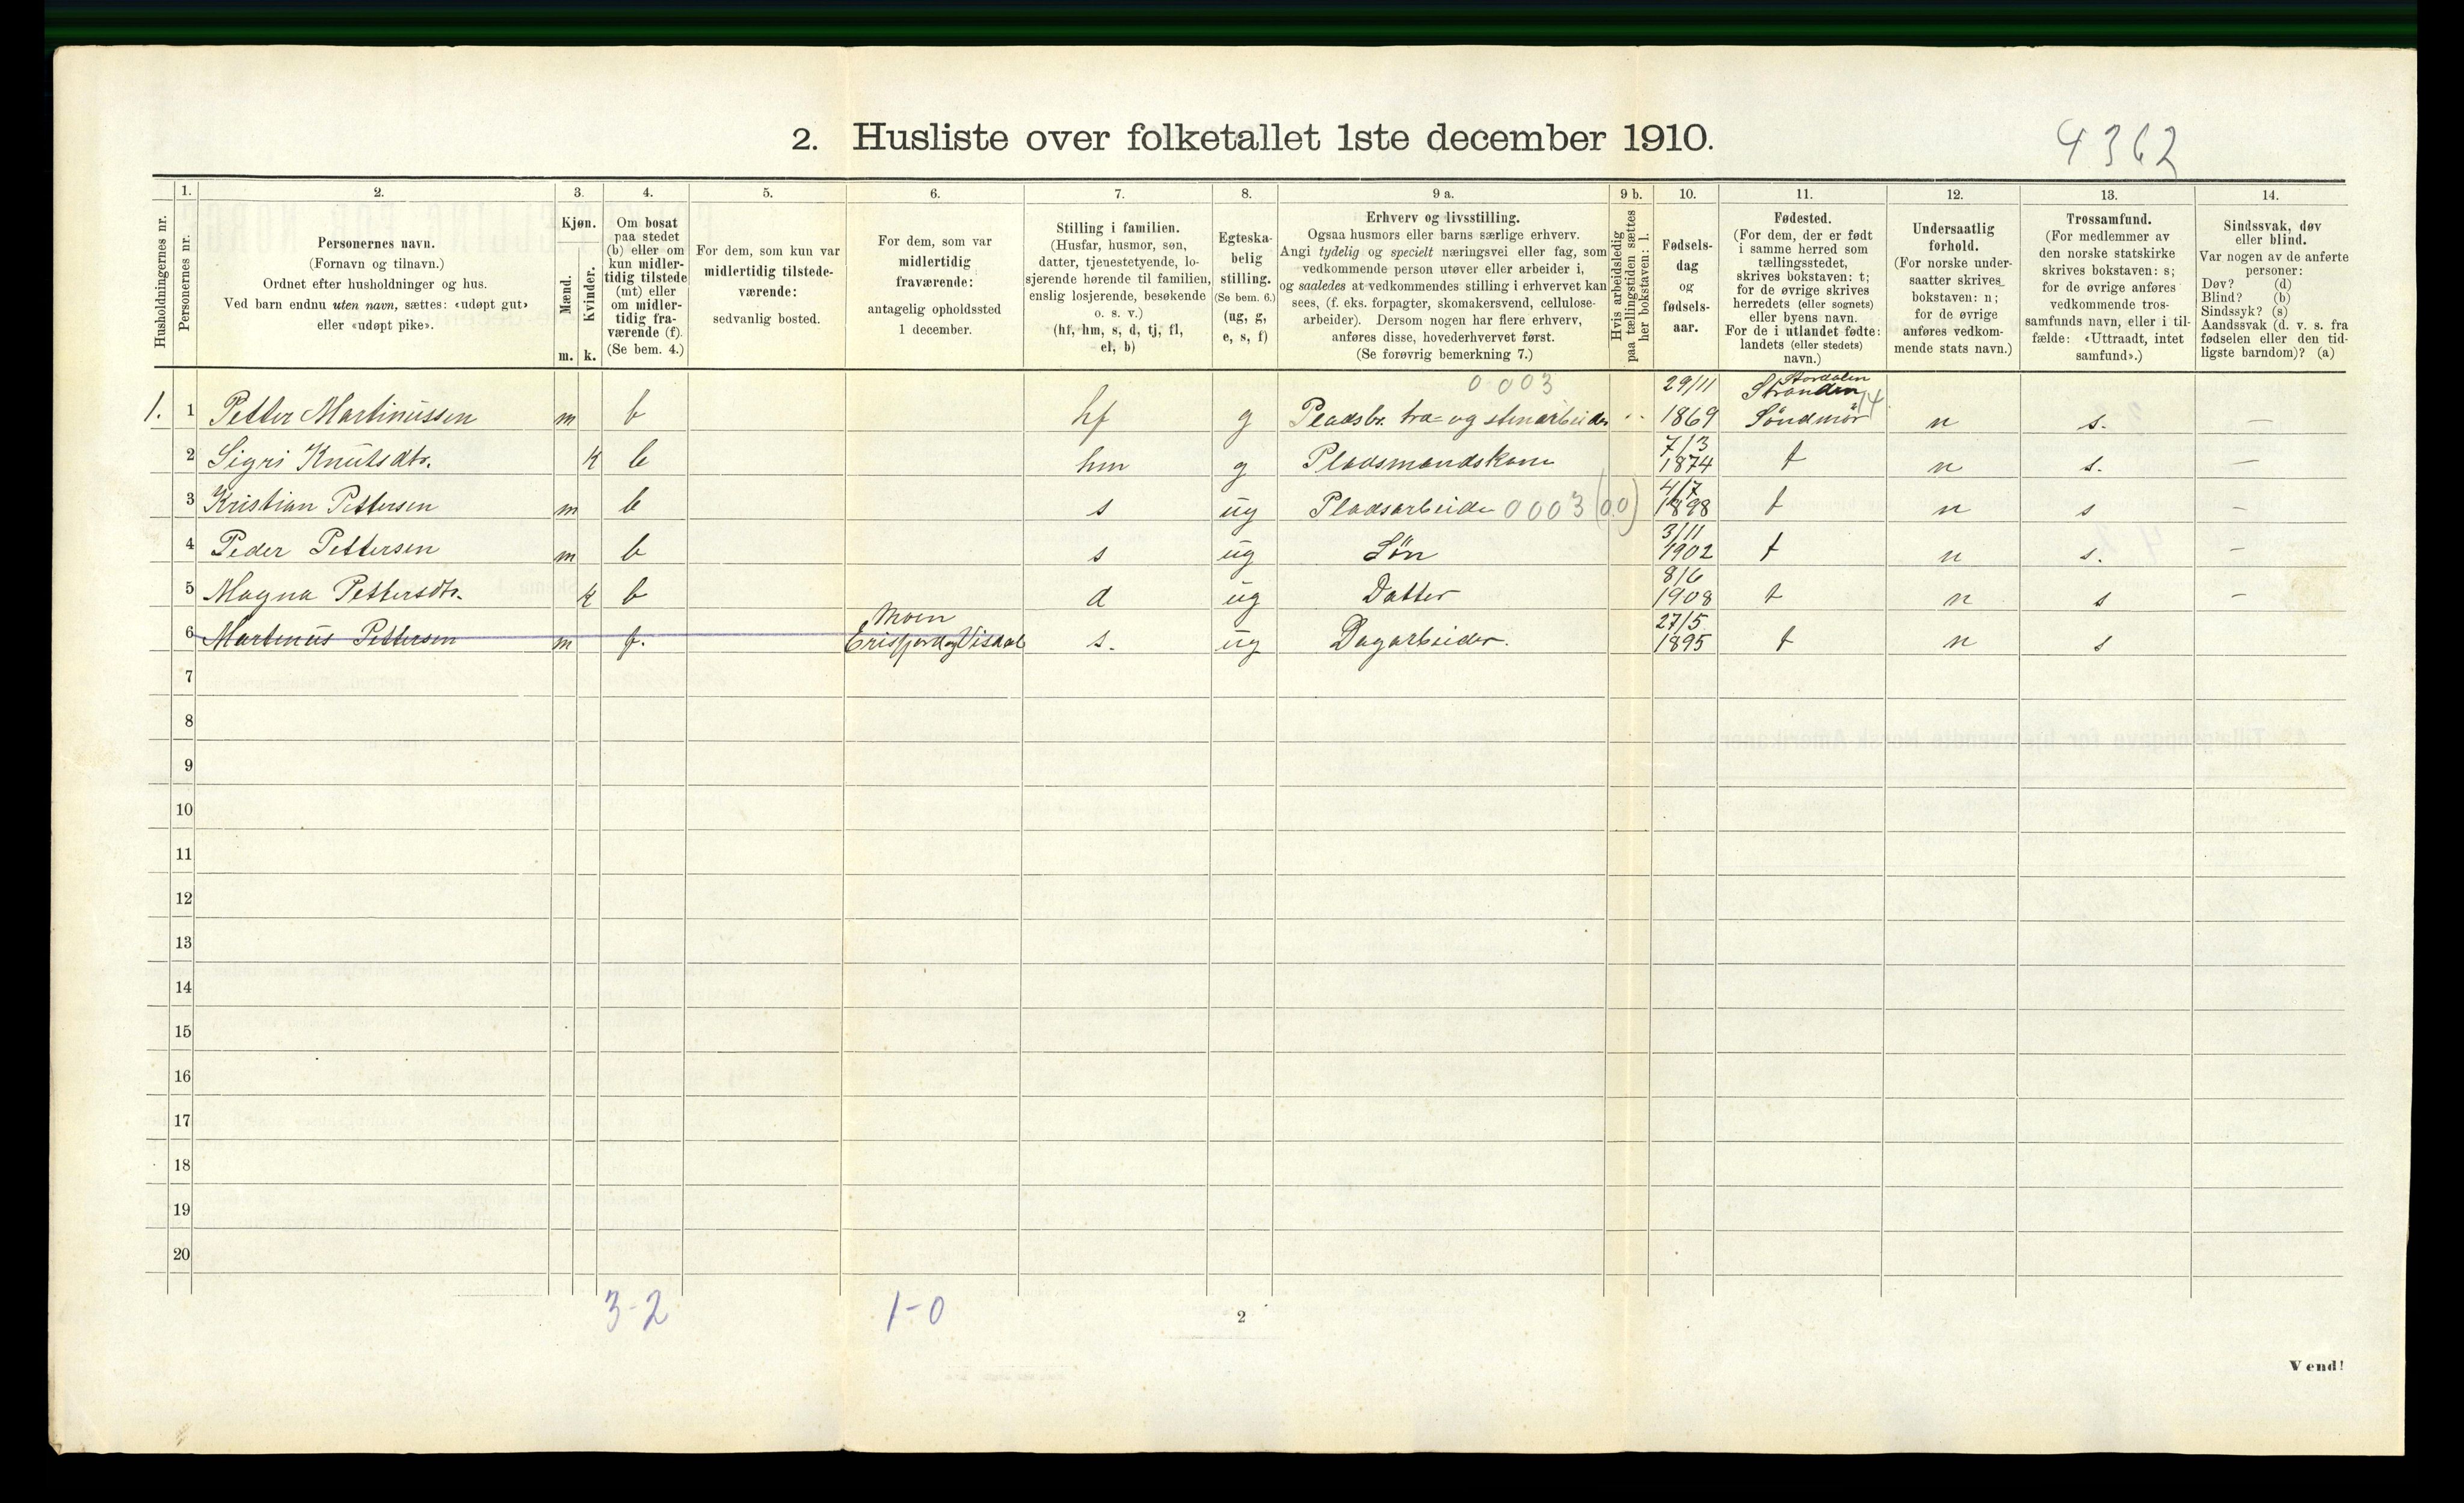 2. Husliste over folketallet 1ste december 1910.
4362
Husholdningernes nr.
1.
Personernes nr.
2.
Personernes navn.
(Fornavn og tilnavn.)
Ordnet efter husholdninger og hus.
Ved barn endnu uten navn, sættes: «udøpt gut»
eller «udøpt pike».
3.
Kjøn.
Mænd.
Kvinder.
m. k.
4.
Om bosat
paa stedet
(b) eller om
kun midler-
tidig tilstede
(mt) eller
om midler-
tidig fra-
værende (f).
(Se bem. 4.)
5.
For dem, som kun var
midlertidig tilstede-
værende:
sedvanlig bosted.
6.
For dem, som var
midlertidig
fraværende:
antagelig opholdssted
1 december.
7.
Stilling i familien.
(Husfar, husmor, søn,
datter, tjenestetyende, lo-
sjerende hørende til familien,
enslig losjerende, besøkende
o. s. v.)
(hf, hm, s, d, tj, fl,
el, b)
8.
Egteska-
belig
stilling.
(Se bem. 6.)
(ug, g,
e, s, f)
9 a.
Erhverv og livsstilling.
Ogsaa husmors eller barns særlige erhverv.
Angi tydelig og specielt næringsvei eller fag, som
vedkommende person utøver eller arbeider i,
og saaledes at vedkommendes stilling i erhvervet kan
sees, (f. eks. forpagter, skomakersvend, cellulose-
arbeider). Dersom nogen har flere erhverv,
anføres disse, hovederhvervet først.
(Se forøvrig bemerkning 7.)
9 b.
Hvis arbeidsledig
paa tællingstiden sættes
her bokstaven: l.
10.
Fødsels-
dag
og
fødsels-
aar.
11.
Fødested.
(For dem, der er født
i samme herred som
tællingsstedet,
skrives bokstaven: t;
for de øvrige skrives
herredets (eller sognets)
eller byens navn.
For de i utlandet fødte:
landets (eller stedets)
navn.)
12.
Undersaatlig
forhold.
(For norske under-
saatter skrives
bokstaven: n;
for de øvrige
anføres vedkom-
mende stats navn.)
13.
Trossamfund.
(For medlemmer av
den norske statskirke
skrives bokstaven: s;
for de øvrige anføres
vedkommende tros-
samfunds navn, eller i til-
fælde: «Uttraadt, intet
samfund».)
14.
Sindssvak, døv
eller blind.
Var nogen av de anførte
personer:
Døv? (d)
Blind? (b)
Sindssyk? (s)
Aandssvak (d. v. s. fra
fødselen eller den tid-
ligste barndom)? (a)
0 003 29/11 Stordalen
Stranden
1. 1 Petter Martinussen m b hf g Pladsbr. træ- og stenarbeider 1869 Söndmör 14 n s. —
7/3
2 Sigri Knutsdtr. k b hm g Pladsmandskone 1874 t n s. —
4/7
3 Kristian Pettersen m b s ug Pladsarbeider 0003 (00) 1898 t n s –
3/11
4 Peder Pettersen m b s ug Sön 1902 t n s. –
8/6
5 Magna Pettersdtr. k b d ug Datter 1908 t n s –
Moen 27/5
6 Martinus Pettersen m f. Erisfjord og Visdal s. ug Dagarbeider. 1895 t n s
7
8
9
10
11
12
13
14
15
16
17
18
19
20
3-2 1-0
2
Vend!